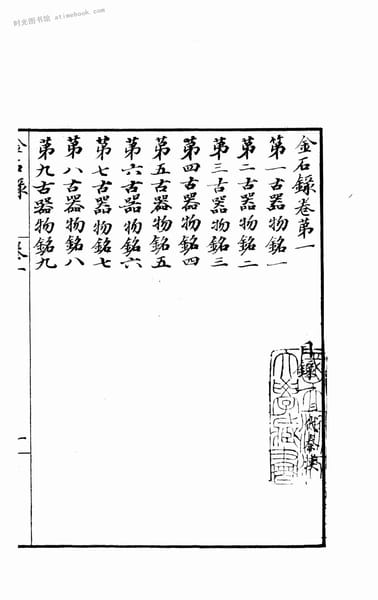 时光图书馆 atimebook.com
金石錄卷第一
目錄一 三代 秦漢
第一古器物銘一
第二古器物銘二
第三古器物銘三
第四古器物銘四
第五古器物銘五
第六古器物銘六
第七古器物銘七
第八古器物銘八
第九古器物銘九